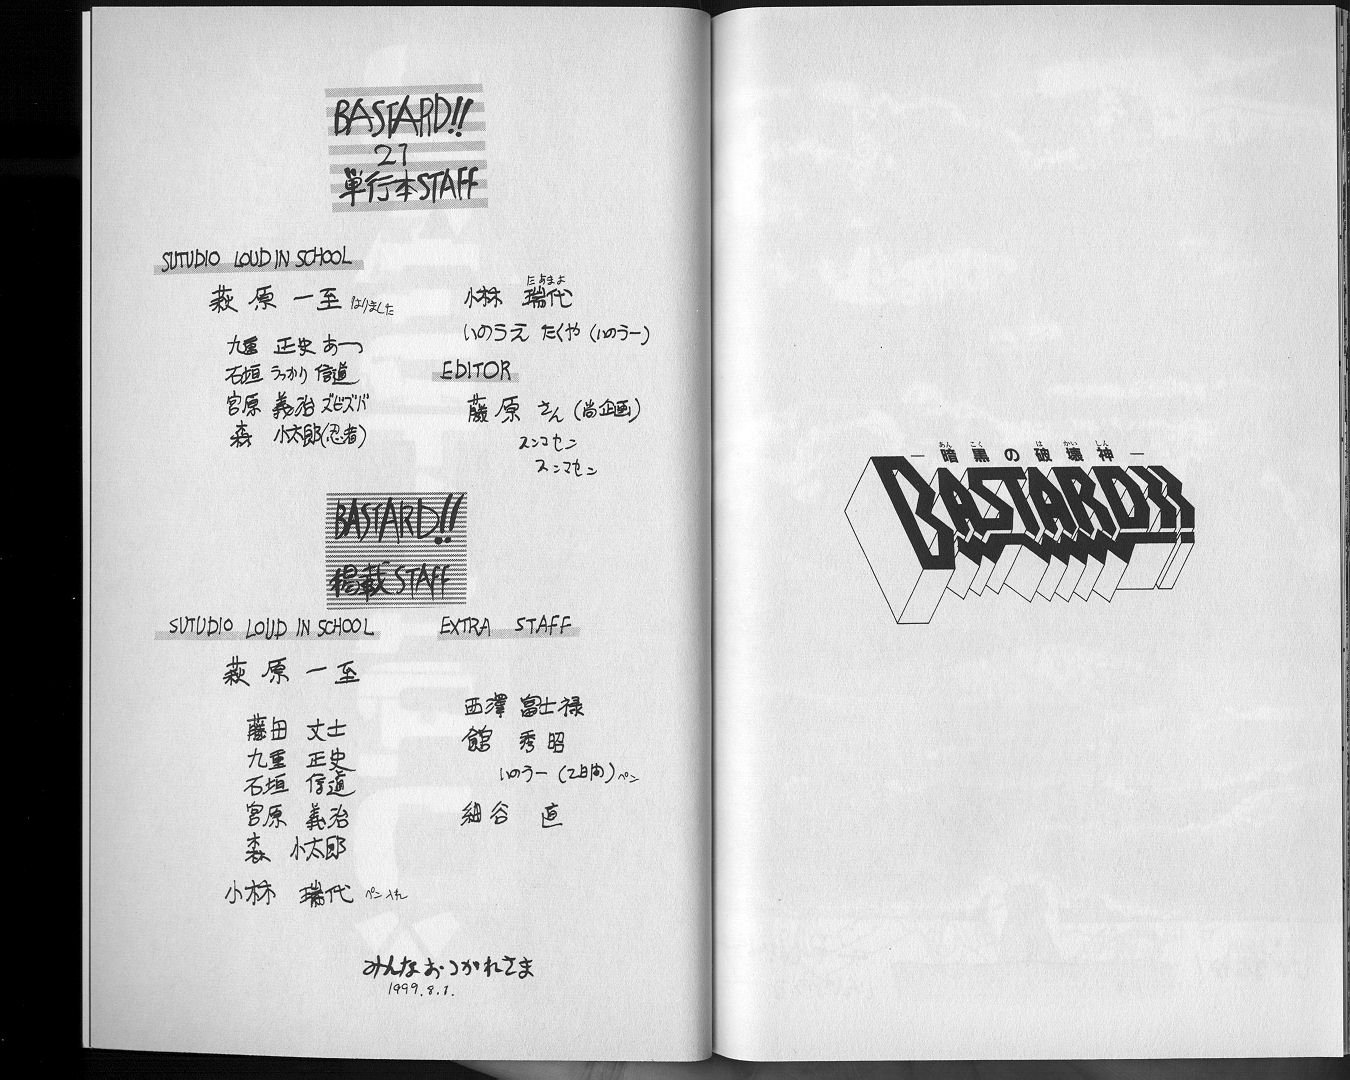 BASTARD!!
21
単行本STAFF
SUTUDIO LOUD IN SCHOOL
萩原 一至 はりました
九重 正史 あーっ
石垣 うっかり 信道
宮原 義治 ズビズバ
森 小太郎(忍者)
たまよ
小林 瑞代
いのうえ たくや (いのうー)
EDITOR
藤原 さん (尚企画)
スンマセン
スンマセン
BASTARD!!
掲載STAFF
SUTUDIO LOUD IN SCHOOL
萩原 一至
藤田 丈士
九重 正史
石垣 信道
宮原 義治
森 小太郎
小林 瑞代 ペン入れ
EXTRA STAFF
西澤 富士禄
館 秀昭
いのうー (2日間) ペン
細谷 直
みんなおつかれさま
1999.8.1.
あん こく は かい しん
― 暗黒の破壊神 ―
BASTARD!!